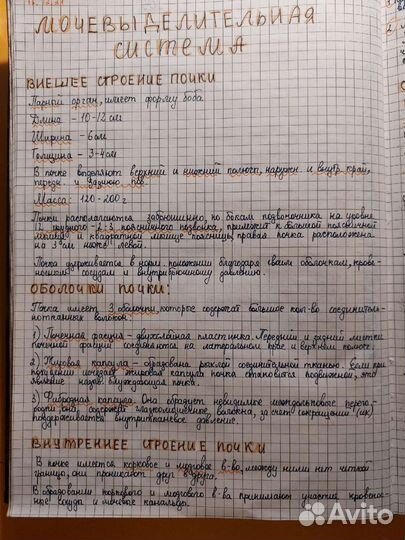 МОЧЕВЫДЕЛИТЕЛЬНАЯ
СИСТЕМА
ВНЕШНЕЕ СТРОЕНИЕ ПОЧКИ
Парный орган, имеет форму боба
Длина - 10-12 см
Ширина - 6 см
Толщина - 3-4 см
В почке выделяют верхний и нижний полюса, наружн. и внутр. край,
передн. и заднюю пов.
Масса: 120-200 г
Почки располагаются забрюшинно, по бокам позвоночника на уровне
12 грудного - 2-3 поясничного позвонка, прилежат к большой поясничной
мышце и квадратной мышце поясницы, правая почка расположена
на 3 см ниже левой.
Почка удерживается в норм. положении благодаря своим оболочкам, крове-
носным сосудам и внутрибрюшному давлению.
ОБОЛОЧКИ ПОЧКИ:
Почка имеет 3 оболочки, которые содержат большое кол-во соединитель-
нотканных волокон.
1) Почечная фасция - двухслойная пластинка. Передний и задний листки
почечной фасции соединяются на латеральном крае и верхнем полюсе.
2) Жировая капсула - образована рыхлой соединительной тканью. Если при
похудении исчезает жировая капсула почка становится подвижной, это
явление назыв. блуждающая почка.
3) Фиброзная капсула. Она образует невидимые междольковые перего-
родки она содержит гладкомышечные волокна, за счет сокращений (их)
поддерживается внутритканевое давление.
ВНУТРЕННЕЕ СТРОЕНИЕ ПОЧКИ
В почке имеется корковое и мозговое в-во, между ними нет четкой
границы, они проникают друг в друга.
В образовании коркового и мозгового в-ва принимают участия кровенос-
ные сосуды и мочевые канальцы.
Avito